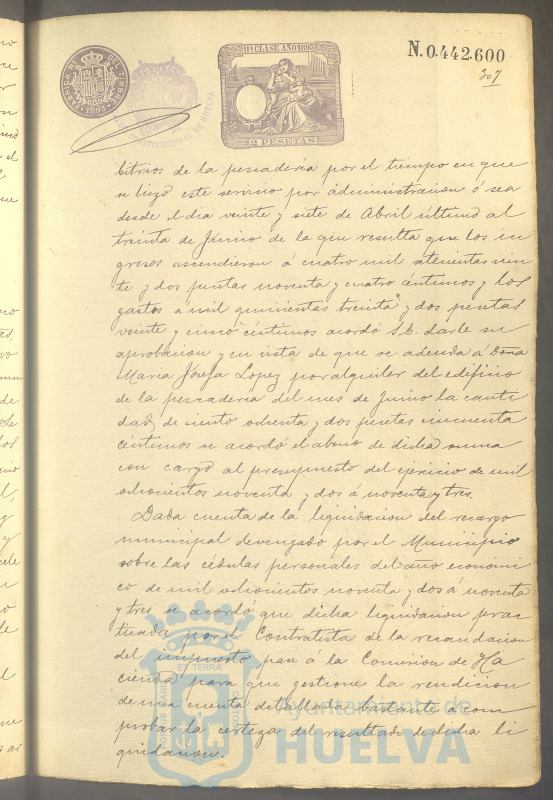 11ª CLASE AÑO 1893
2 PESETAS
N.0.442.600
207
CONSTITUCIONAL DE HUELVA
bitrios de la pescaderia por el tiempo en que
se hizo este servicio por administracion ó sea
desde el dia veinte y siete de Abril último al
treinta de Junio de la que resulta que los in
gresos ascendieron á cuatro mil setecientas vein
te y dos pesetas noventa y cuatro céntimos y los
gastos a mil quinientas treinta y dos pesetas
veinte y cinco céntimos acordó S.E. darle su
aprobacion y en vista de que se adeuda á doña
Maria Josefa Lopez por alquiler del edificio
de la pescaderia del mes de Junio la canti
dad de ciento ochenta y dos pesetas cincuenta
céntimos se acordó el abono de dicha suma
con cargo al presupuesto del ejercicio de mil
ochocientos noventa y dos á noventa y tres.
Dada cuenta de la liquidacion del recargo
municipal devengado por el Municipio
sobre las cédulas personales del año económi
co de mil ochocientos noventa y dos á noventa
y tres se acordó que dicha liquidacion prac
ticada por el Contratista de la recaudacion
del impuesto pase á la Comision de Ha
cienda para que gestione la rendicion
de una cuenta detallada bastante á com
probar la certeza del resultado de dicha li
quidacion.
Ayuntamiento de
HUELVA